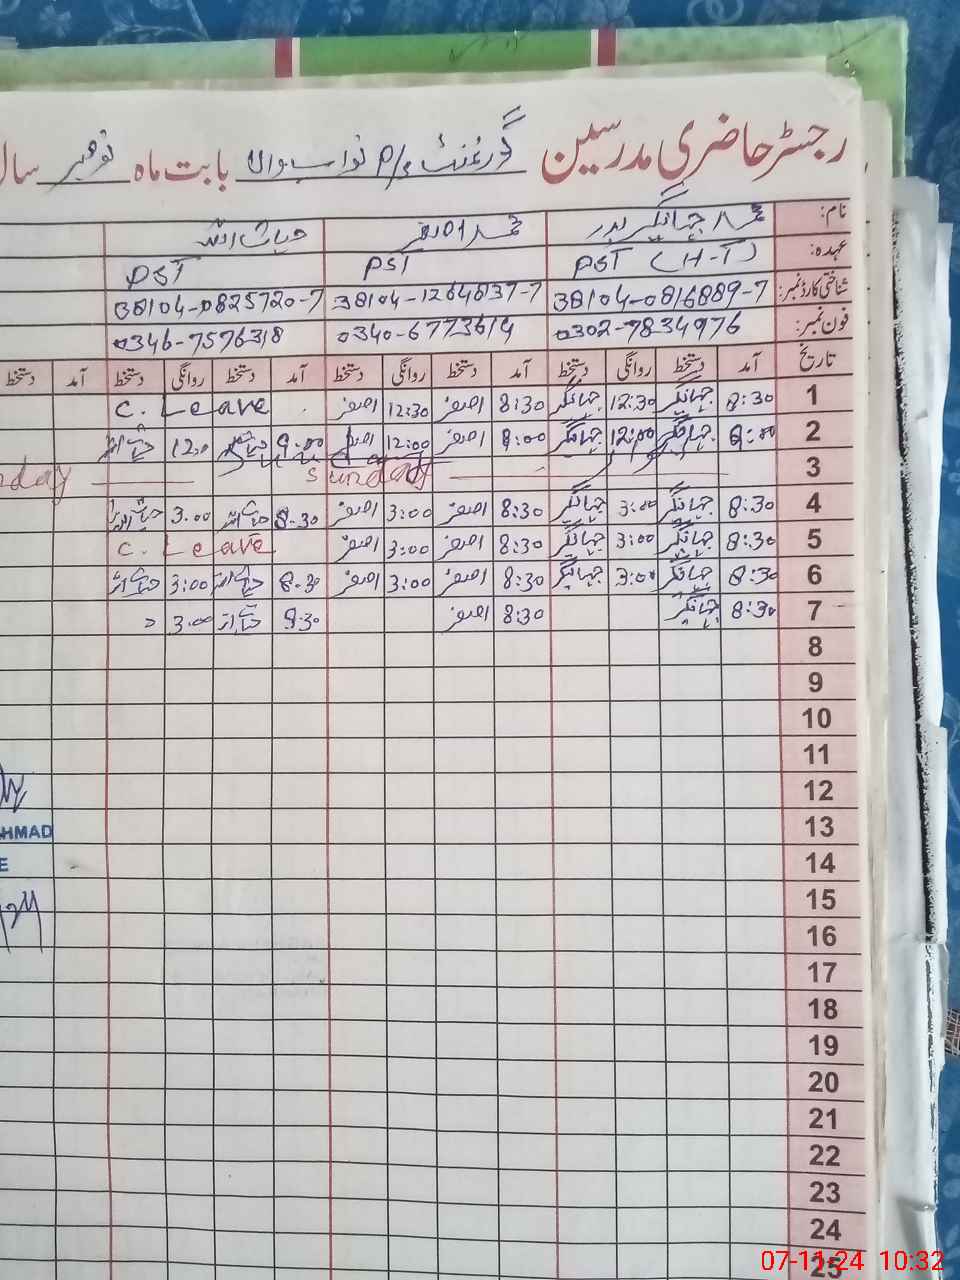 رجسٹر حاضری مدرسین گورنمنٹ P/S نواب والا بابت ماہ نومبر سال
نام: محمد جہانگیر بدر محمد اصغر حیات اللہ
عہدہ: PST (H-T) PST PST
شناختی کارڈ نمبر: 38104-0816889-7 38104-1264837-7 38104-0825720-7
فون نمبر: 0302-7834976 0340-6773614 0346-7576318
تاریخ آمد دستخط روانگی دستخط آمد دستخط روانگی دستخط آمد دستخط روانگی دستخط آمد دستخط
1 8:30 جہانگیر 12:30 جہانگیر 8:30 اصغر 12:30 اصغر C. Leave
2 8:00 جہانگیر 12:00 جہانگیر 8:00 اصغر 12:00 اصغر 8:00 حیات اللہ 12.0 حیات اللہ
3 Sunday nday
4 8:30 جہانگیر 3:00 جہانگیر 8:30 اصغر 3:00 اصغر 8.30 حیات اللہ 3.00 حیات اللہ
5 8:30 جہانگیر 3:00 جہانگیر 8:30 اصغر 3:00 اصغر C. Leave
6 8:30 جہانگیر 3:00 جہانگیر 8:30 اصغر 3:00 اصغر 8.30 حیات اللہ 3:00 حیات اللہ
7 8:30 جہانگیر 8:30 اصغر 8.30 حیات اللہ 3.00
8
9
10
11
12
13 HMAD
14 E
15
16
17
18
19
20
21
22
23
24
25
07-11-24 10:32